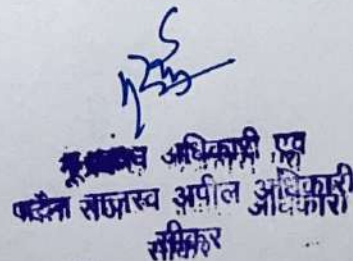 अधिकारी एवं
पदेन राजस्व अपील अधिकारी
सीकर